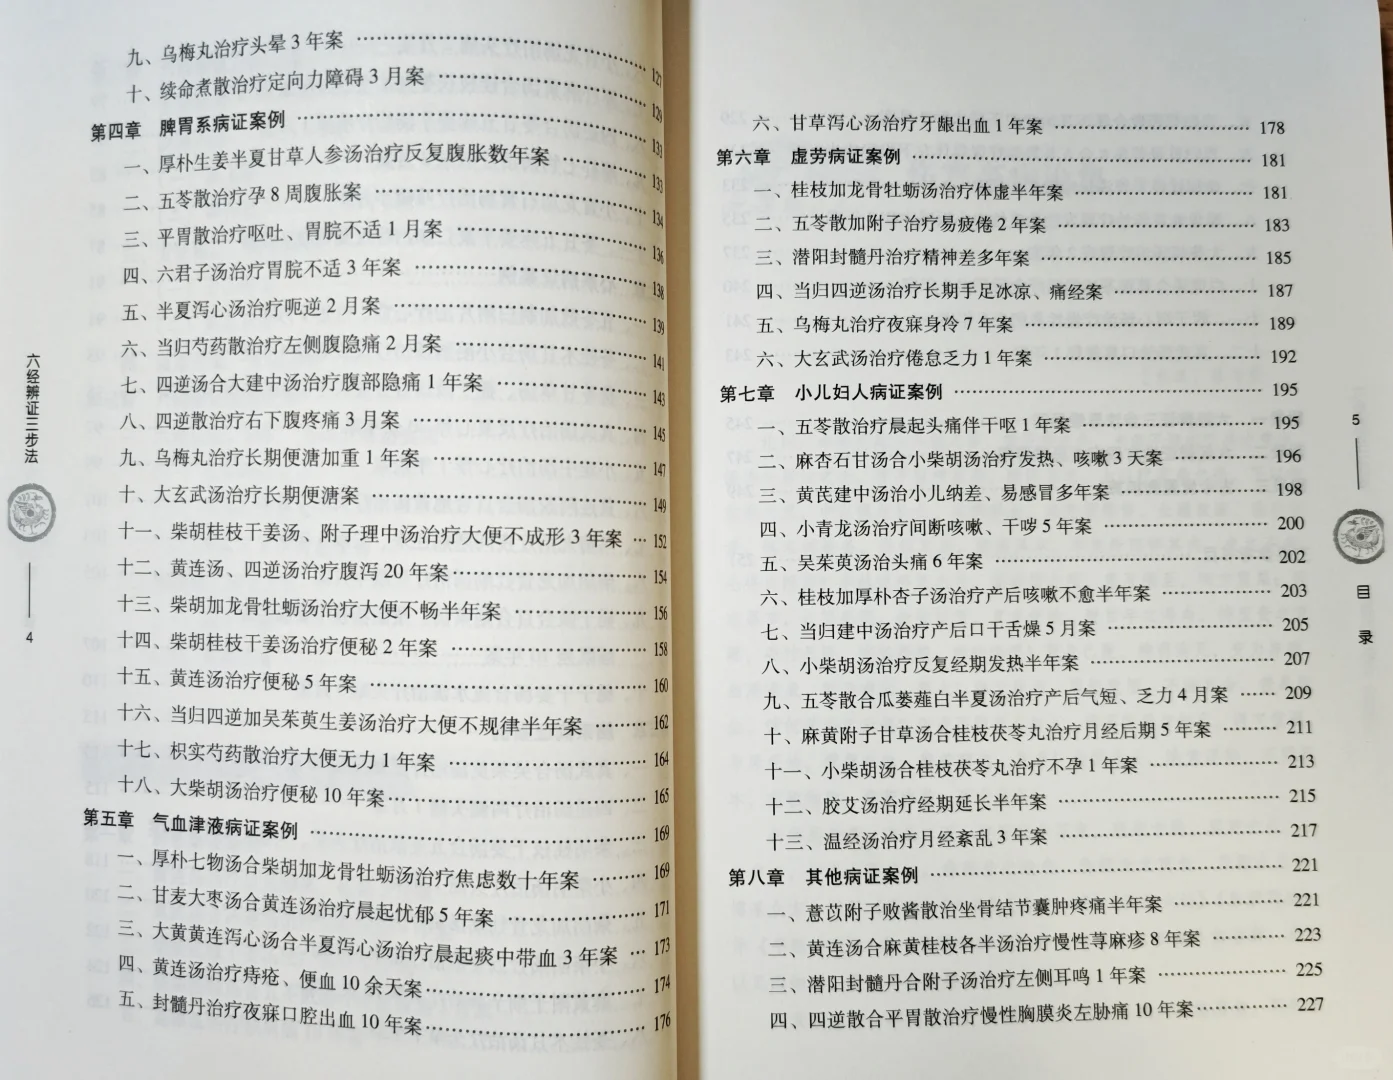 九、乌梅丸治疗头晕 3 年案 …… 127
十、续命煮散治疗定向力障碍 3 月案 …… 129
第四章 脾胃系病证案例 …… 131
一、厚朴生姜半夏甘草人参汤治疗反复腹胀数年案 …… 133
二、五苓散治疗孕 8 周腹胀案 …… 134
三、平胃散治疗呕吐、胃脘不适 1 月案 …… 136
四、六君子汤治疗胃脘不适 3 年案 …… 138
五、半夏泻心汤治疗呃逆 2 月案 …… 139
六、当归芍药散治疗左侧腹隐痛 2 月案 …… 141
七、四逆汤合大建中汤治疗腹部隐痛 1 年案 …… 143
八、四逆散治疗右下腹疼痛 3 月案 …… 145
九、乌梅丸治疗长期便溏加重 1 年案 …… 147
十、大玄武汤治疗长期便溏案 …… 149
十一、柴胡桂枝干姜汤、附子理中汤治疗大便不成形 3 年案 … 152
十二、黄连汤、四逆汤治疗腹泻 20 年案 …… 154
十三、柴胡加龙骨牡蛎汤治疗大便不畅半年案 …… 156
十四、柴胡桂枝干姜汤治疗便秘 2 年案 …… 158
十五、黄连汤治疗便秘 5 年案 …… 160
十六、当归四逆加吴茱萸生姜汤治疗大便不规律半年案 …… 162
十七、枳实芍药散治疗大便无力 1 年案 …… 164
十八、大柴胡汤治疗便秘 10 年案 …… 165
第五章 气血津液病证案例 …… 169
一、厚朴七物汤合柴胡加龙骨牡蛎汤治疗焦虑数十年案 …… 169
二、甘麦大枣汤合黄连汤治疗晨起忧郁 5 年案 …… 171
三、大黄黄连泻心汤合半夏泻心汤治疗晨起痰中带血 3 年案 … 173
四、黄连汤治疗痔疮、便血 10 余天案 …… 174
五、封髓丹治疗夜寐口腔出血 10 年案 …… 176
六经辨证三步法
4
六、甘草泻心汤治疗牙龈出血 1 年案 …… 178
第六章 虚劳病证案例 …… 181
一、桂枝加龙骨牡蛎汤治疗体虚半年案 …… 181
二、五苓散加附子治疗易疲倦 2 年案 …… 183
三、潜阳封髓丹治疗精神差多年案 …… 185
四、当归四逆汤治疗长期手足冰凉、痛经案 …… 187
五、乌梅丸治疗夜寐身冷 7 年案 …… 189
六、大玄武汤治疗倦怠乏力 1 年案 …… 192
第七章 小儿妇人病证案例 …… 195
一、五苓散治疗晨起头痛伴干呕 1 年案 …… 195
二、麻杏石甘汤合小柴胡汤治疗发热、咳嗽 3 天案 …… 196
三、黄芪建中汤治小儿纳差、易感冒多年案 …… 198
四、小青龙汤治疗间断咳嗽、干哕 5 年案 …… 200
五、吴茱萸汤治头痛 6 年案 …… 202
六、桂枝加厚朴杏子汤治疗产后咳嗽不愈半年案 …… 203
七、当归建中汤治疗产后口干舌燥 5 月案 …… 205
八、小柴胡汤治疗反复经期发热半年案 …… 207
九、五苓散合瓜蒌薤白半夏汤治疗产后气短、乏力 4 月案 …… 209
十、麻黄附子甘草汤合桂枝茯苓丸治疗月经后期 5 年案 …… 211
十一、小柴胡汤合桂枝茯苓丸治疗不孕 1 年案 …… 213
十二、胶艾汤治疗经期延长半年案 …… 215
十三、温经汤治疗月经紊乱 3 年案 …… 217
第八章 其他病证案例 …… 221
一、薏苡附子败酱散治坐骨结节囊肿疼痛半年案 …… 221
二、黄连汤合麻黄桂枝各半汤治疗慢性荨麻疹 8 年案 …… 223
三、潜阳封髓丹合附子汤治疗左侧耳鸣 1 年案 …… 225
四、四逆散合平胃散治疗慢性胸膜炎左胁痛 10 年案 …… 227
5
目录